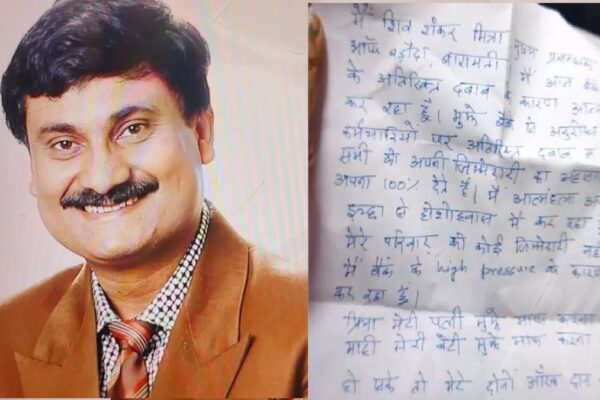 में शिव शंकर मित्रा मुख्य प्रबन्धक
ऑफ बड़ौदा, बारामती में आज बैंक
के अतिरिक्त दबाव के कारण आत्म
कर रहा हूँ। मुझे बैंक से अनुरोध
कर्मचारियों पर अतिरिक्त दबाव न
सभी को अपनी जिम्मेदारी का अहसा
अपना 100% देते है। मैं आत्महत्या अ
इच्छा से होशोहवास में कर रहा हू
मेरे परिवार की कोई जिम्मेदारी नही
मैं बैंक के high pressure के कारण
कर रहा हूँ।
प्रिया मेरी पत्नी मुझे माफ करना
माही मेरी बेटी मुझे माफ करना
हो सके तो मेरे दोनों आँख दान